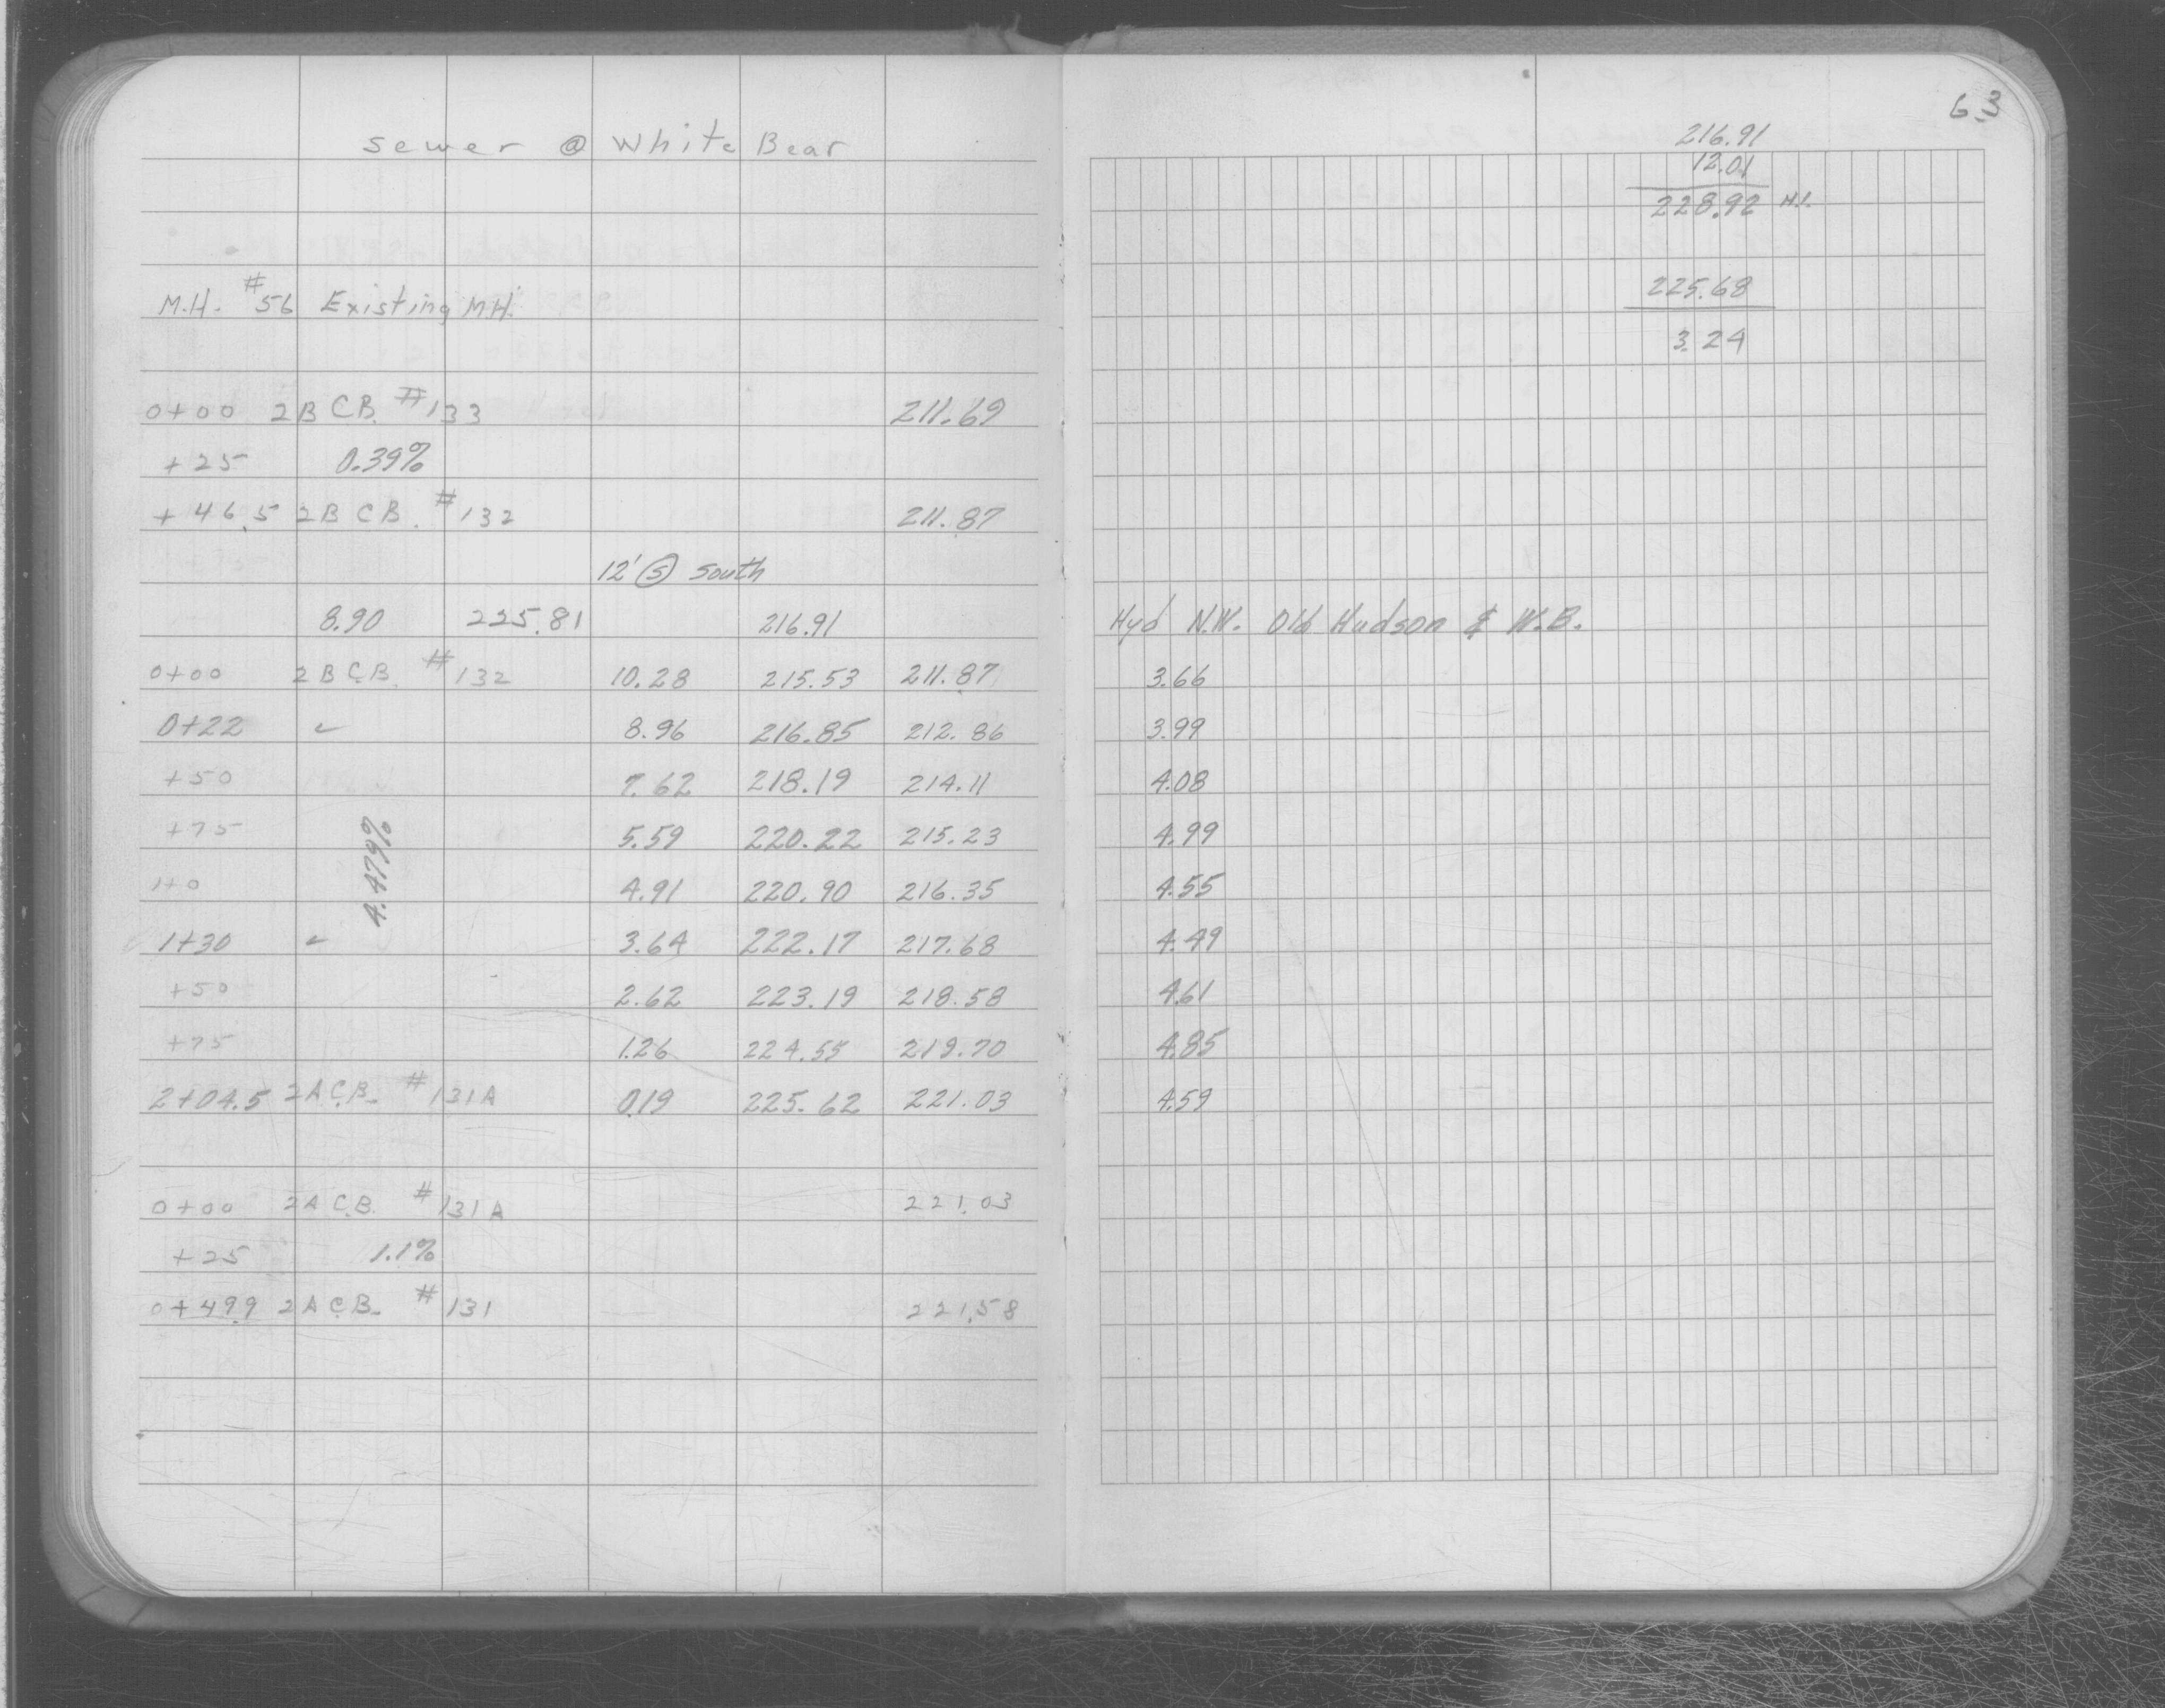 sewer @ White Bear
M.H. #56 Existing M.H.
0+00 2B C.B. #133 211.69
+25 0.39%
+46.5 2B C.B. #132 211.87
12' Ⓢ South
8.90 225.81 216.91
0+00 2B C.B. #132 10.28 215.53 211.87
0+22 ✓ 8.96 216.85 212.86
+50 7.62 218.19 214.11
+75 5.59 220.22 215.23
1+0 4.91 220.90 216.35
4.479%
1+30 ✓ 3.64 222.17 217.68
+50 2.62 223.19 218.58
+75 1.26 224.55 219.70
2+04.5 2A C.B. #131A 0.19 225.62 221.03
0+00 2A C.B. #131A 221.03
+25 1.1%
0+49.9 2A C.B. #131 221.58
63
216.91
12.01
228.92 H.I.
225.68
3.24
Hyd N.W. Old Hudson & W.B.
3.66
3.99
4.08
4.99
4.55
4.49
4.61
4.85
4.59